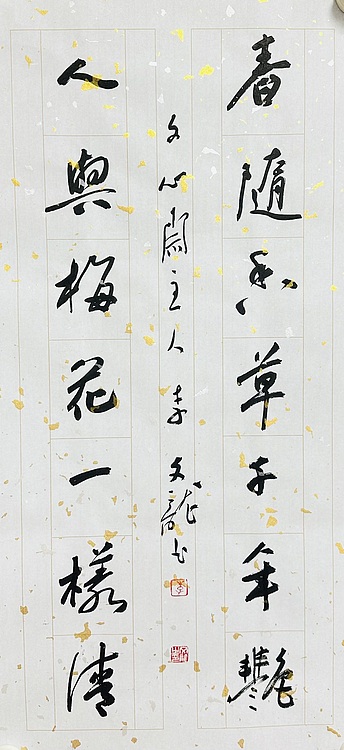 春隨香草千年艷
人與梅花一樣清
文心閣主人李文龍書